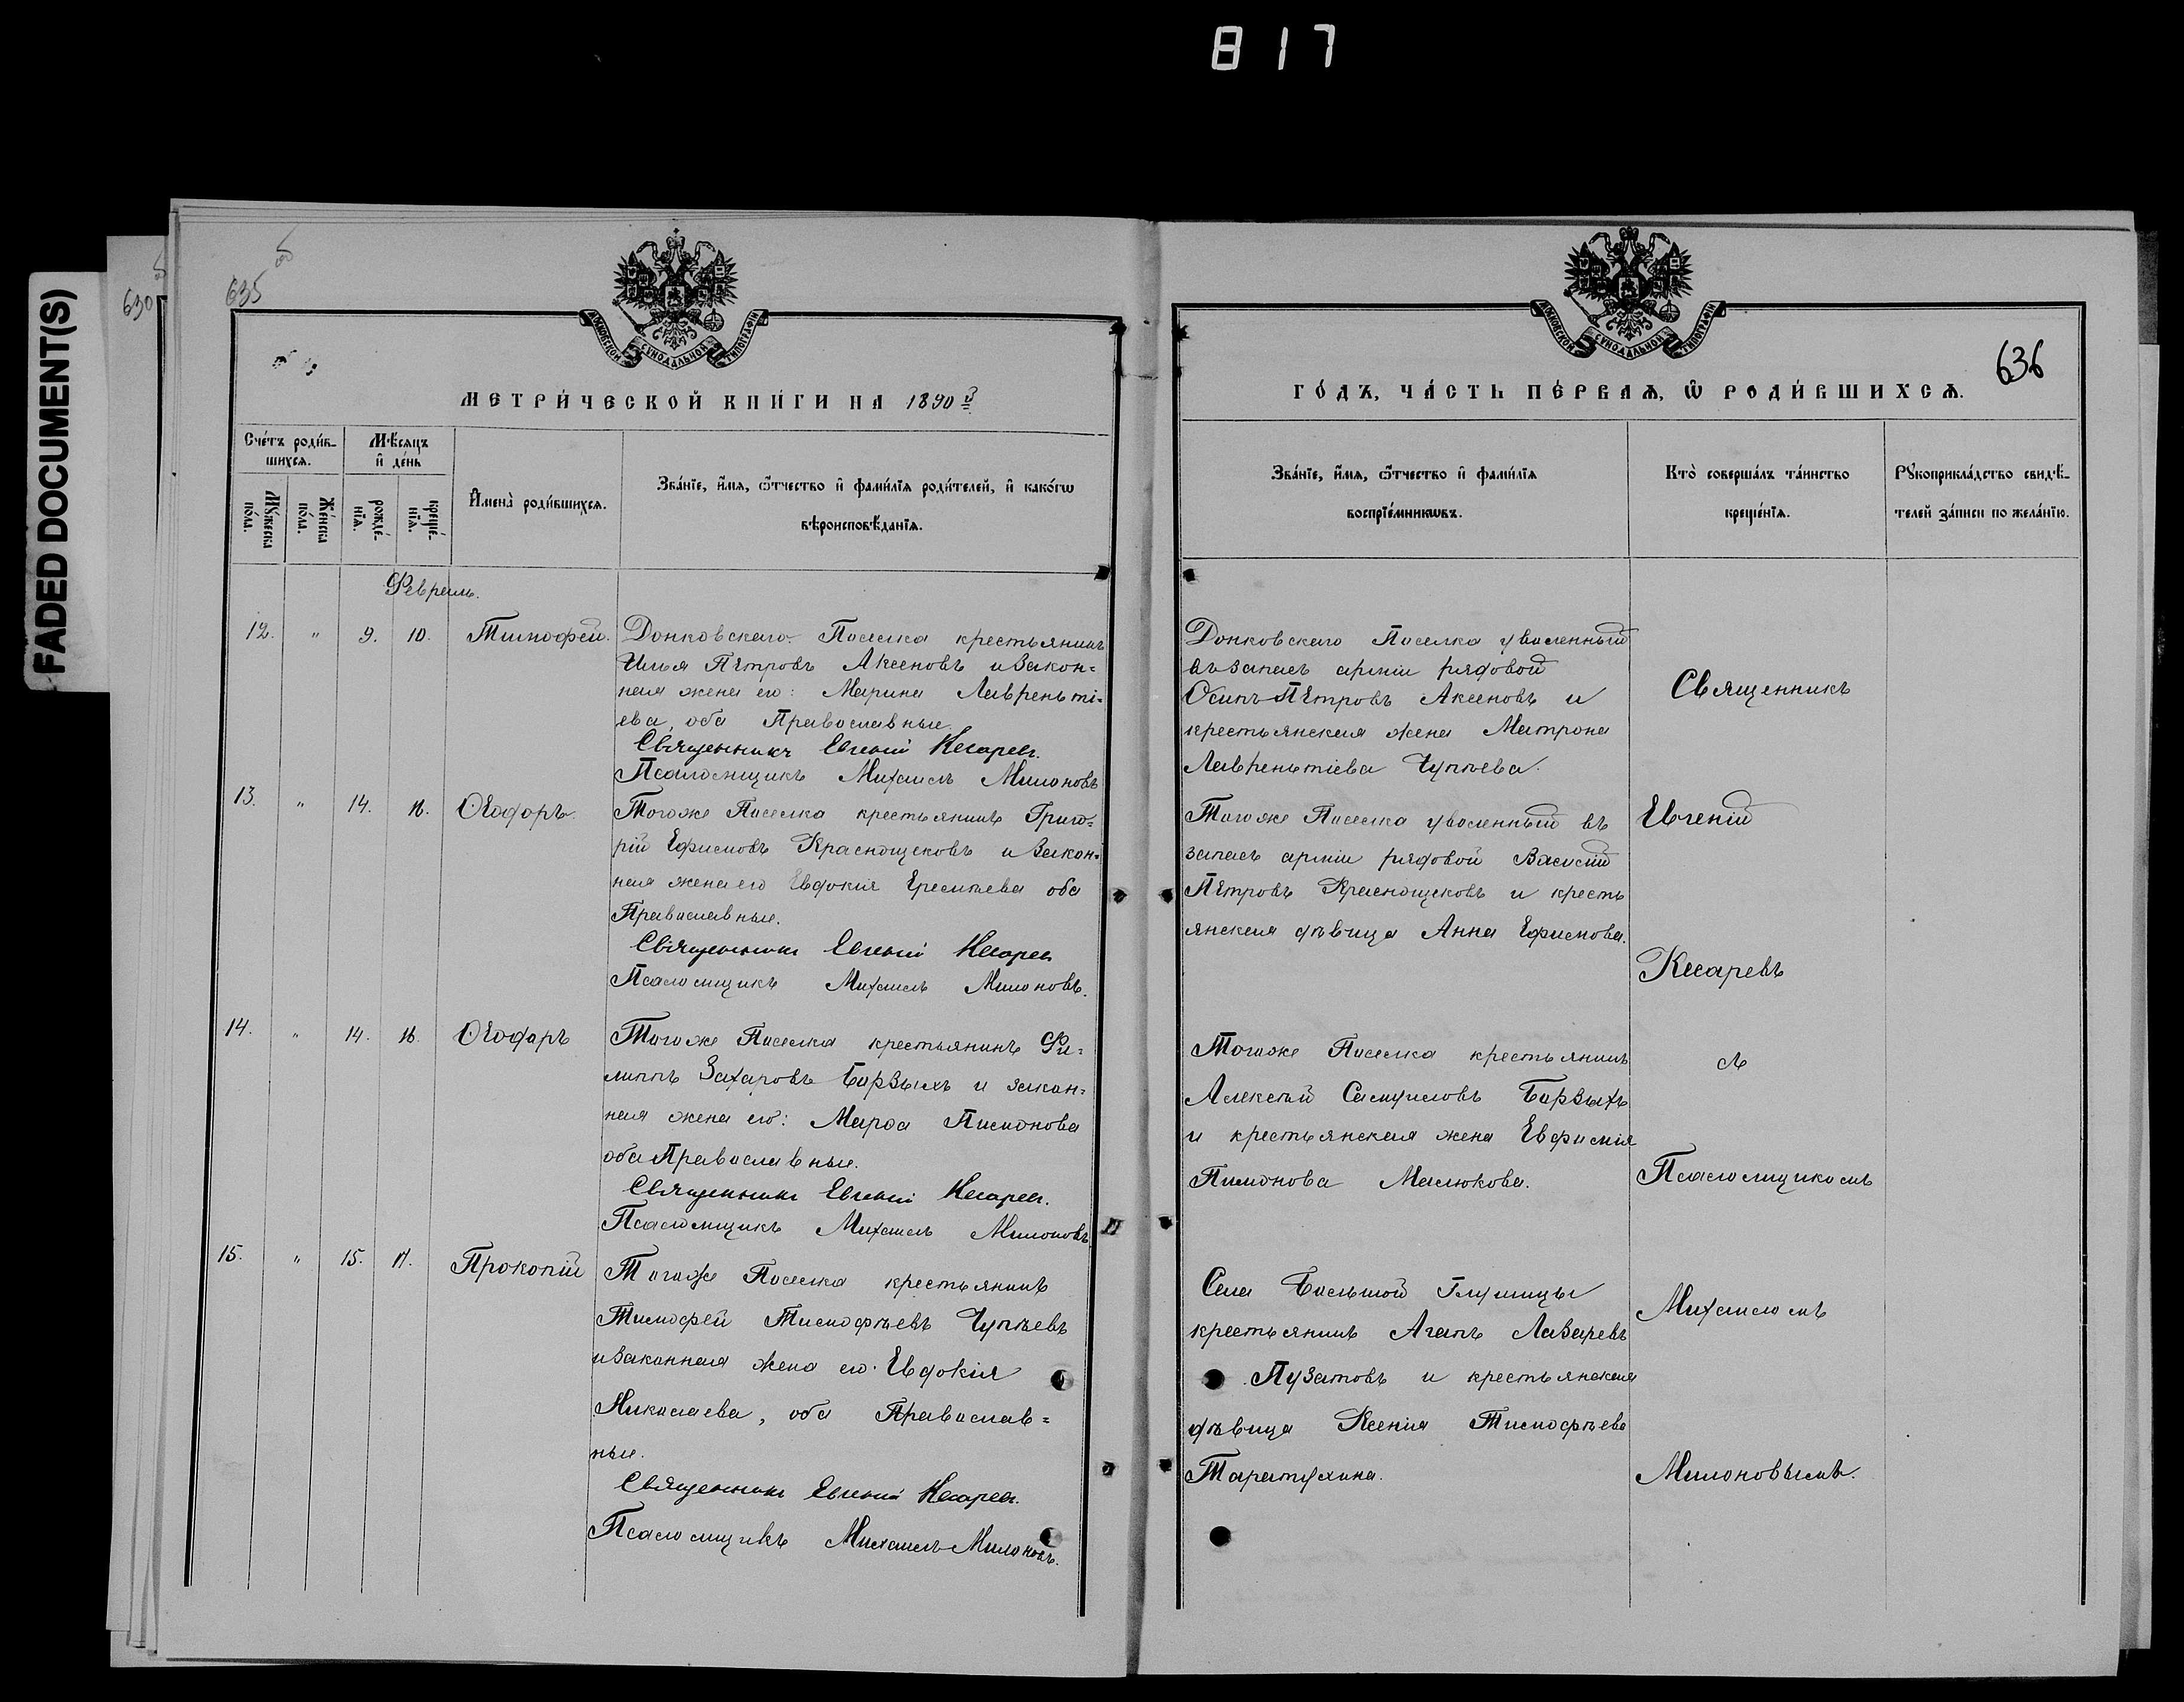 817
FADED DOCUMENT(S)
630
635
об
МОСКОВСКОЙ СУНОДАЛЬНОЙ ТИПОГРАФІИ
МЕТРИ́ЧЕСКОЙ КНИ́ГИ НА 1890й
Сче́тъ роди́в-
шихсѧ.
Мѣ́сѧцъ
и҆ де́нь
Мꙋ́жеска
по́ла.
Же́нска
по́ла.
рожде́-
нїѧ.
креще́-
нїѧ.
И҆мена̀ роди́вшихсѧ.
Зва́нїе, и҆́мѧ, ѻ҆́тчество и҆ фамилїѧ роди́телей, и҆ како́гѡ
вѣроисповѣ́данїѧ.
Февраль.
12. " 9. 10. Тимофей.
Донковскаго Поселка крестьянинъ
Илья Пѣтровъ Аксеновъ и закон=
ная жена его: Марина Лаврентьі=
ева, оба Православные.
Священникъ Евгеній Кесаревъ.
Псаломщикъ Михаилъ Милоновъ
13. " 14. 16. Ѳеодоръ.
Тогоже Поселка крестьянинъ Григо=
рій Ефимовъ Краснощековъ и закон=
ная жена его Евдокія оба
Православные.
Священникъ Евгеній Кесаревъ
Псаломщикъ Михаилъ Милоновъ.
14. " 14. 16. Ѳеодоръ
Тогоже Поселка крестьянинъ Фи=
липпъ Захаровъ Борзыхъ и закон=
ная жена его: Марѳа Пимонова
оба Православные.
Священникъ Евгеній Кесаревъ.
Псаломщикъ Михаилъ Милоновъ
15. " 15. 17. Прокопій
Тогоже Поселка крестьянинъ
Тимофей Тимофѣевъ Чупѣевъ
и законная жена его: Евдокія
Николаева, оба Православ=
ные.
Священникъ Евгеній Кесаревъ.
Псаломщикъ Михаилъ Милоновъ.
МОСКОВСКОЙ СУНОДАЛЬНОЙ ТИПОГРАФІИ
636
ГО́ДЪ, ЧА́СТЬ ПЕ́РВАѦ, Ѡ҆ РОДИ́ВШИХСѦ.
Зва́нїе, и҆́мѧ, ѻ҆́тчество и҆ фами́лїѧ
воспрїе́мникѡвъ.
Кто̀ соверша́лъ та́инство
креще́нїѧ.
Рꙋкоприкла́дство свидѣ́-
телей за́писи по жела́нїю.
Донковскаго Поселка уволенный
въ запасъ арміи рядовой
Осипъ Пѣтровъ Аксеновъ и
крестьянская жена Матрона
Лаврентьіева Чупѣева.
Тогоже Поселка уволенный въ
запасъ арміи рядовой Василій
Пѣтровъ Краснощековъ и кресть
янская дѣвица Анна Ефимова.
Тогоже Поселка крестьянинъ
Алексѣй Самуиловъ Борзыхъ
и крестьянская жена Евфимія
Пимонова Маслюкова.
Села Большой Глушицы
крестьянинъ Агапъ Лазаревъ
Пузатовъ и крестьянская
дѣвица Ксенія Тимофѣева
Таратухина.
Священникъ
Евгеній
Кесаревъ
съ
Псаломщикомъ
Михаиломъ
Милоновымъ.